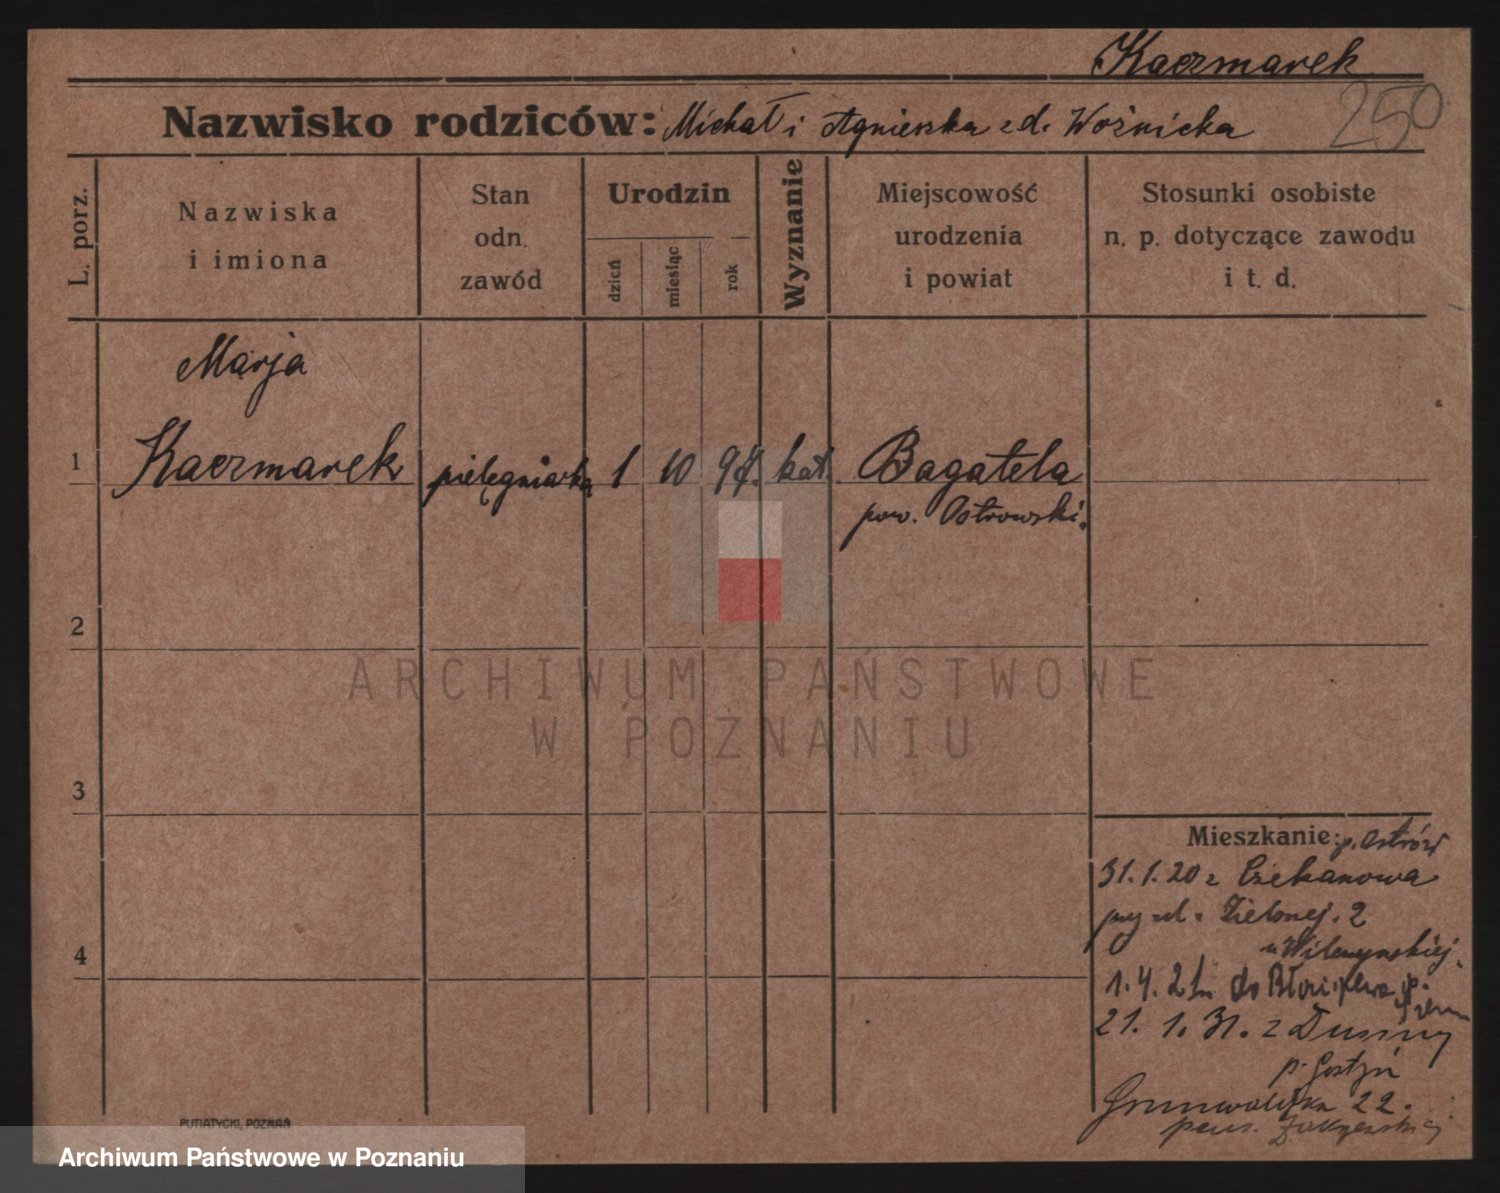 Kaczmarek
250
Nazwisko rodziców: Michał i Agnieszka z d. Woźnicka
L. porz.
Nazwiska
i imiona
Stan
odn.
zawód
Urodzin
dzień
miesiąc
rok
Wyznanie
Miejscowość
urodzenia
i powiat
Stosunki osobiste
n. p. dotyczące zawodu
i t. d.
Marja
1 Kaczmarek pielęgniarka 1 10 97. kat. Bagatela
pow. Ostrowski.
2
ARCHIWUM PAŃSTWOWE
W POZNANIU
3
Mieszkanie: p. Ostrów
31.1.20 z Czekanowa
Zielonej. 2
4
1.4.21. do
21. 1. 31. z
p. Gostyń
Grunwaldzka 22.
PUTIATYCKI, POZNAŃ
Archiwum Państwowe w Poznaniu